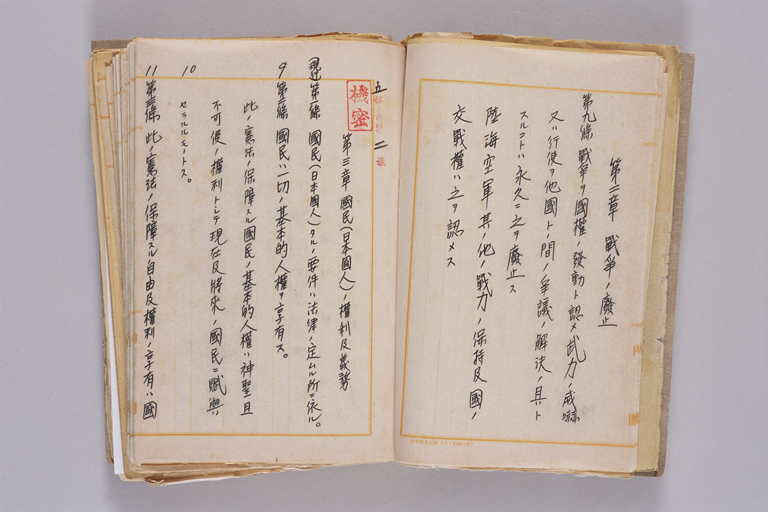 第二章 戰爭ノ廢止
第九條 戰爭ヲ國權ノ發動ト認メ武力ノ威嚇
又ハ行使ヲ他國トノ間ノ爭議ノ解決ノ具ト
スルコトハ永久ニ之ヲ廢止ス
陸海空軍其ノ他ノ戰力ノ保持及國ノ
交戰權ハ之ヲ認メス
五
二
機密
第三章 國民(日本國人)ノ權利及義務
第一條 國民(日本國人)タルノ要件ハ法律ノ定ムル所ニ依ル。
9 第二條 國民ハ一切ノ基本的人權ヲ享有ス。
此ノ憲法ノ保障スル國民ノ基本的人權ハ神聖且
不可侵ノ權利トシテ現在及將來ノ國民ニ賦與
セラルルモノトス。
10
11 第三條 此ノ憲法ノ保障スル自由及權利ノ享有ハ國